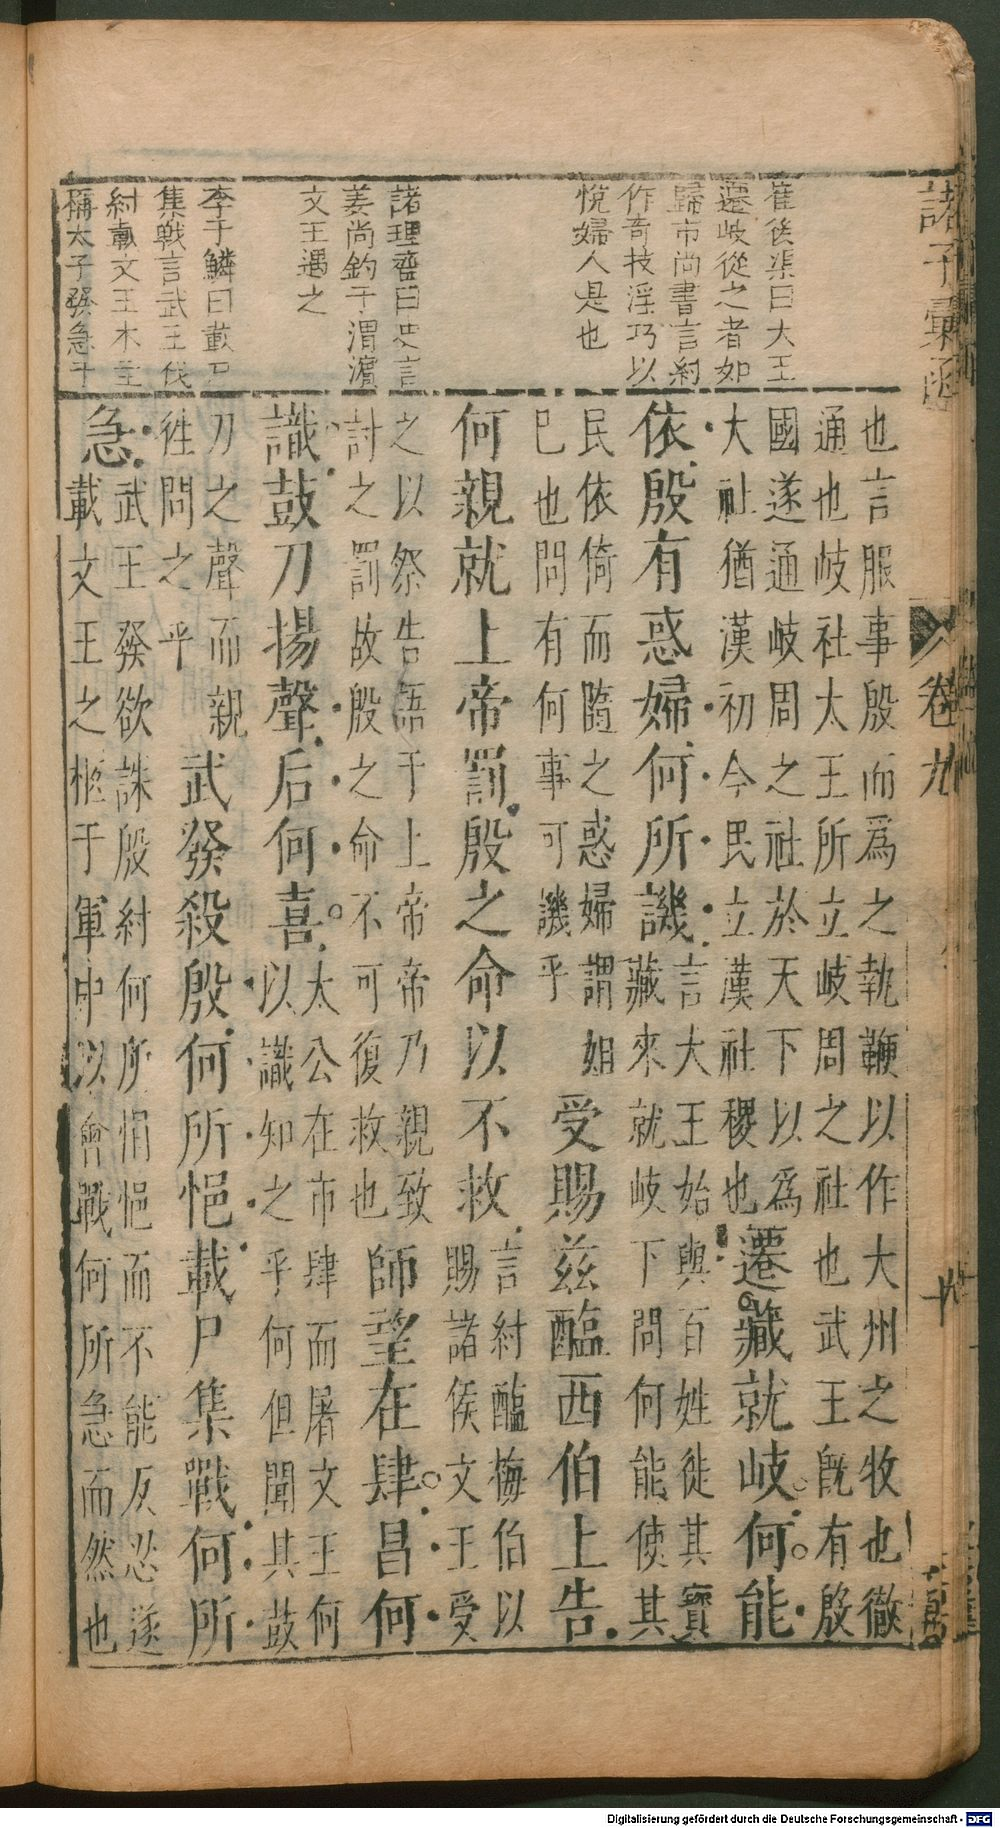 諸子彙函
卷九
崔後渠曰大王
遷岐從之者如
歸市尚書言紂
作奇技淫巧以
悅婦人是也
諸理齋曰史言
姜尚釣于渭濱
文王遇之
李于鱗曰載尸
集戰言武王伐
紂載文王木主
稱太子發急于
也言服事殷而爲之執鞭以作大州之牧也徹
通也岐社太王所立岐周之社也武王既有殷
國遂通岐周之社於天下以爲
大社猶漢初今民立漢社稷也
遷藏就岐何能
依殷有惑婦何所譏
言大王始與百姓徙其寶
藏來就岐下問何能使其
民依倚而隨之惑婦謂妲
巳也問有何事可譏乎
受賜兹醢西伯上告
何親就上帝罰殷之命以不救
言紂醢梅伯以
賜諸侯文王受
之以祭告語于上帝帝乃親致
討之罰故殷之命不可復救也
師望在肆昌何
識鼓刀揚聲后何喜
太公在市肆而屠文王何
以識知之乎何但聞其鼓
刀之聲而親
徃問之乎
武發殺殷何所悒載尸集戰何所
急
武王發欲誅殷紂何所悁悒而不能反忍遂
載文王之柩于軍中以會戰何所急而然也
Digitalisierung gefördert durch die Deutsche Forschungsgemeinschaft - DFG